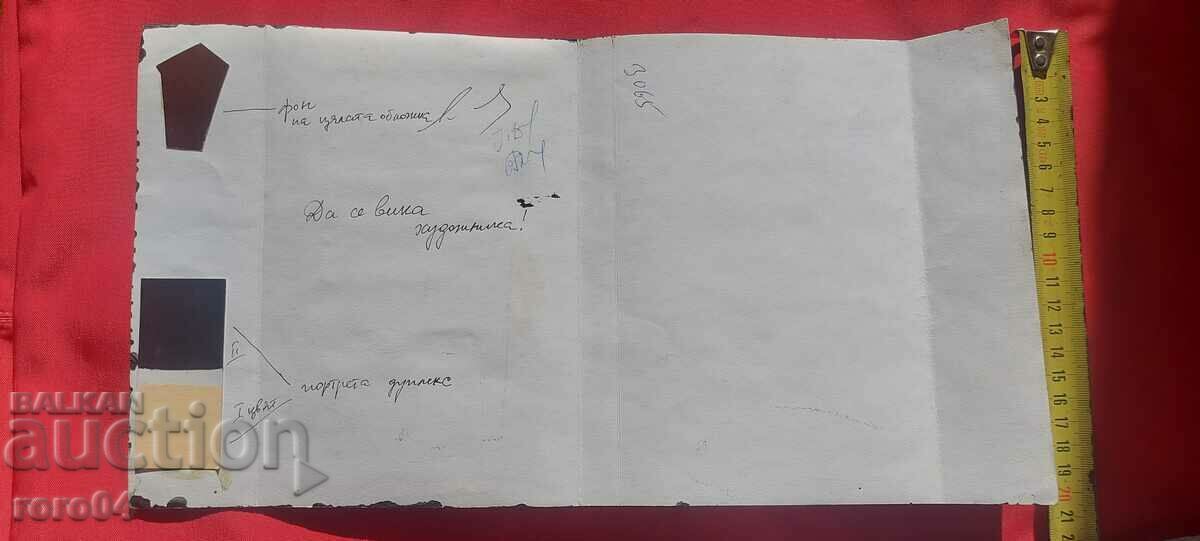 фон
на цялата обложка
Да се вика
художника!
II
I цвят
портрета дуплекс
3065
BALKAN
auction
roro04
3 4 5 6 7 8 9 10 11 12 13 14 15 16 17 18 19 20 21